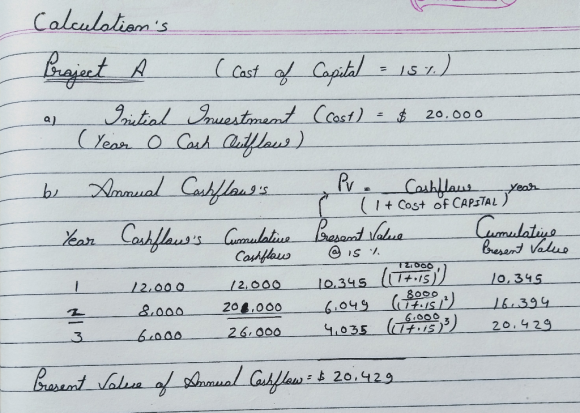 Calculation's
Project A (Cost of Capital = 15 %.)
a) Initial Investment (Cost) = $ 20.000
(Year 0 Cash Outflow)
b) Annual Cashflow's
PV = Cashflow
(1 + Cost of CAPITAL) year
Year Cashflow's Cumulative Cashflow Present Value @ 15 %. Cumulative Present Value
1 12,000 12,000 10,345 (12,000 / (1+.15)^1) 10,345
2 8,000 20,000 6,049 (8000 / (1+.15)^2) 16,394
3 6,000 26,000 4,035 (6,000 / (1+.15)^3) 20,429
Present Value of Annual Cashflow = $ 20,429